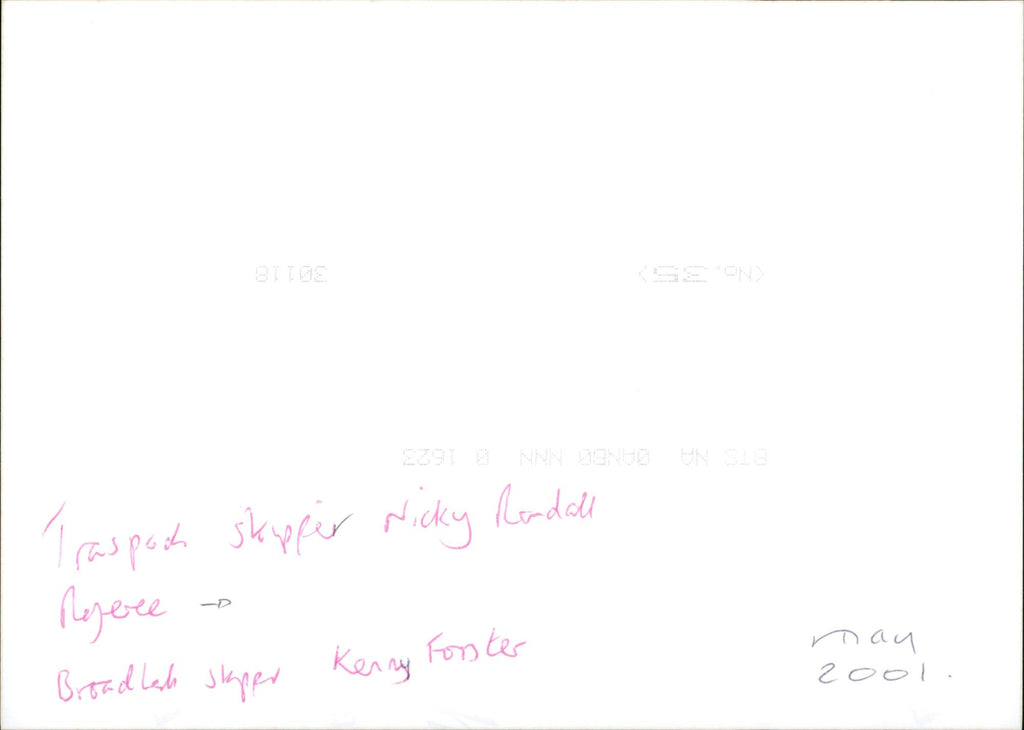 30118 <No.35>
8TS NA 0ANB0 NNN 0 1623
Traspack skipper Nicky Randall
Referee →
skipper Kenny Forster
May
2001.